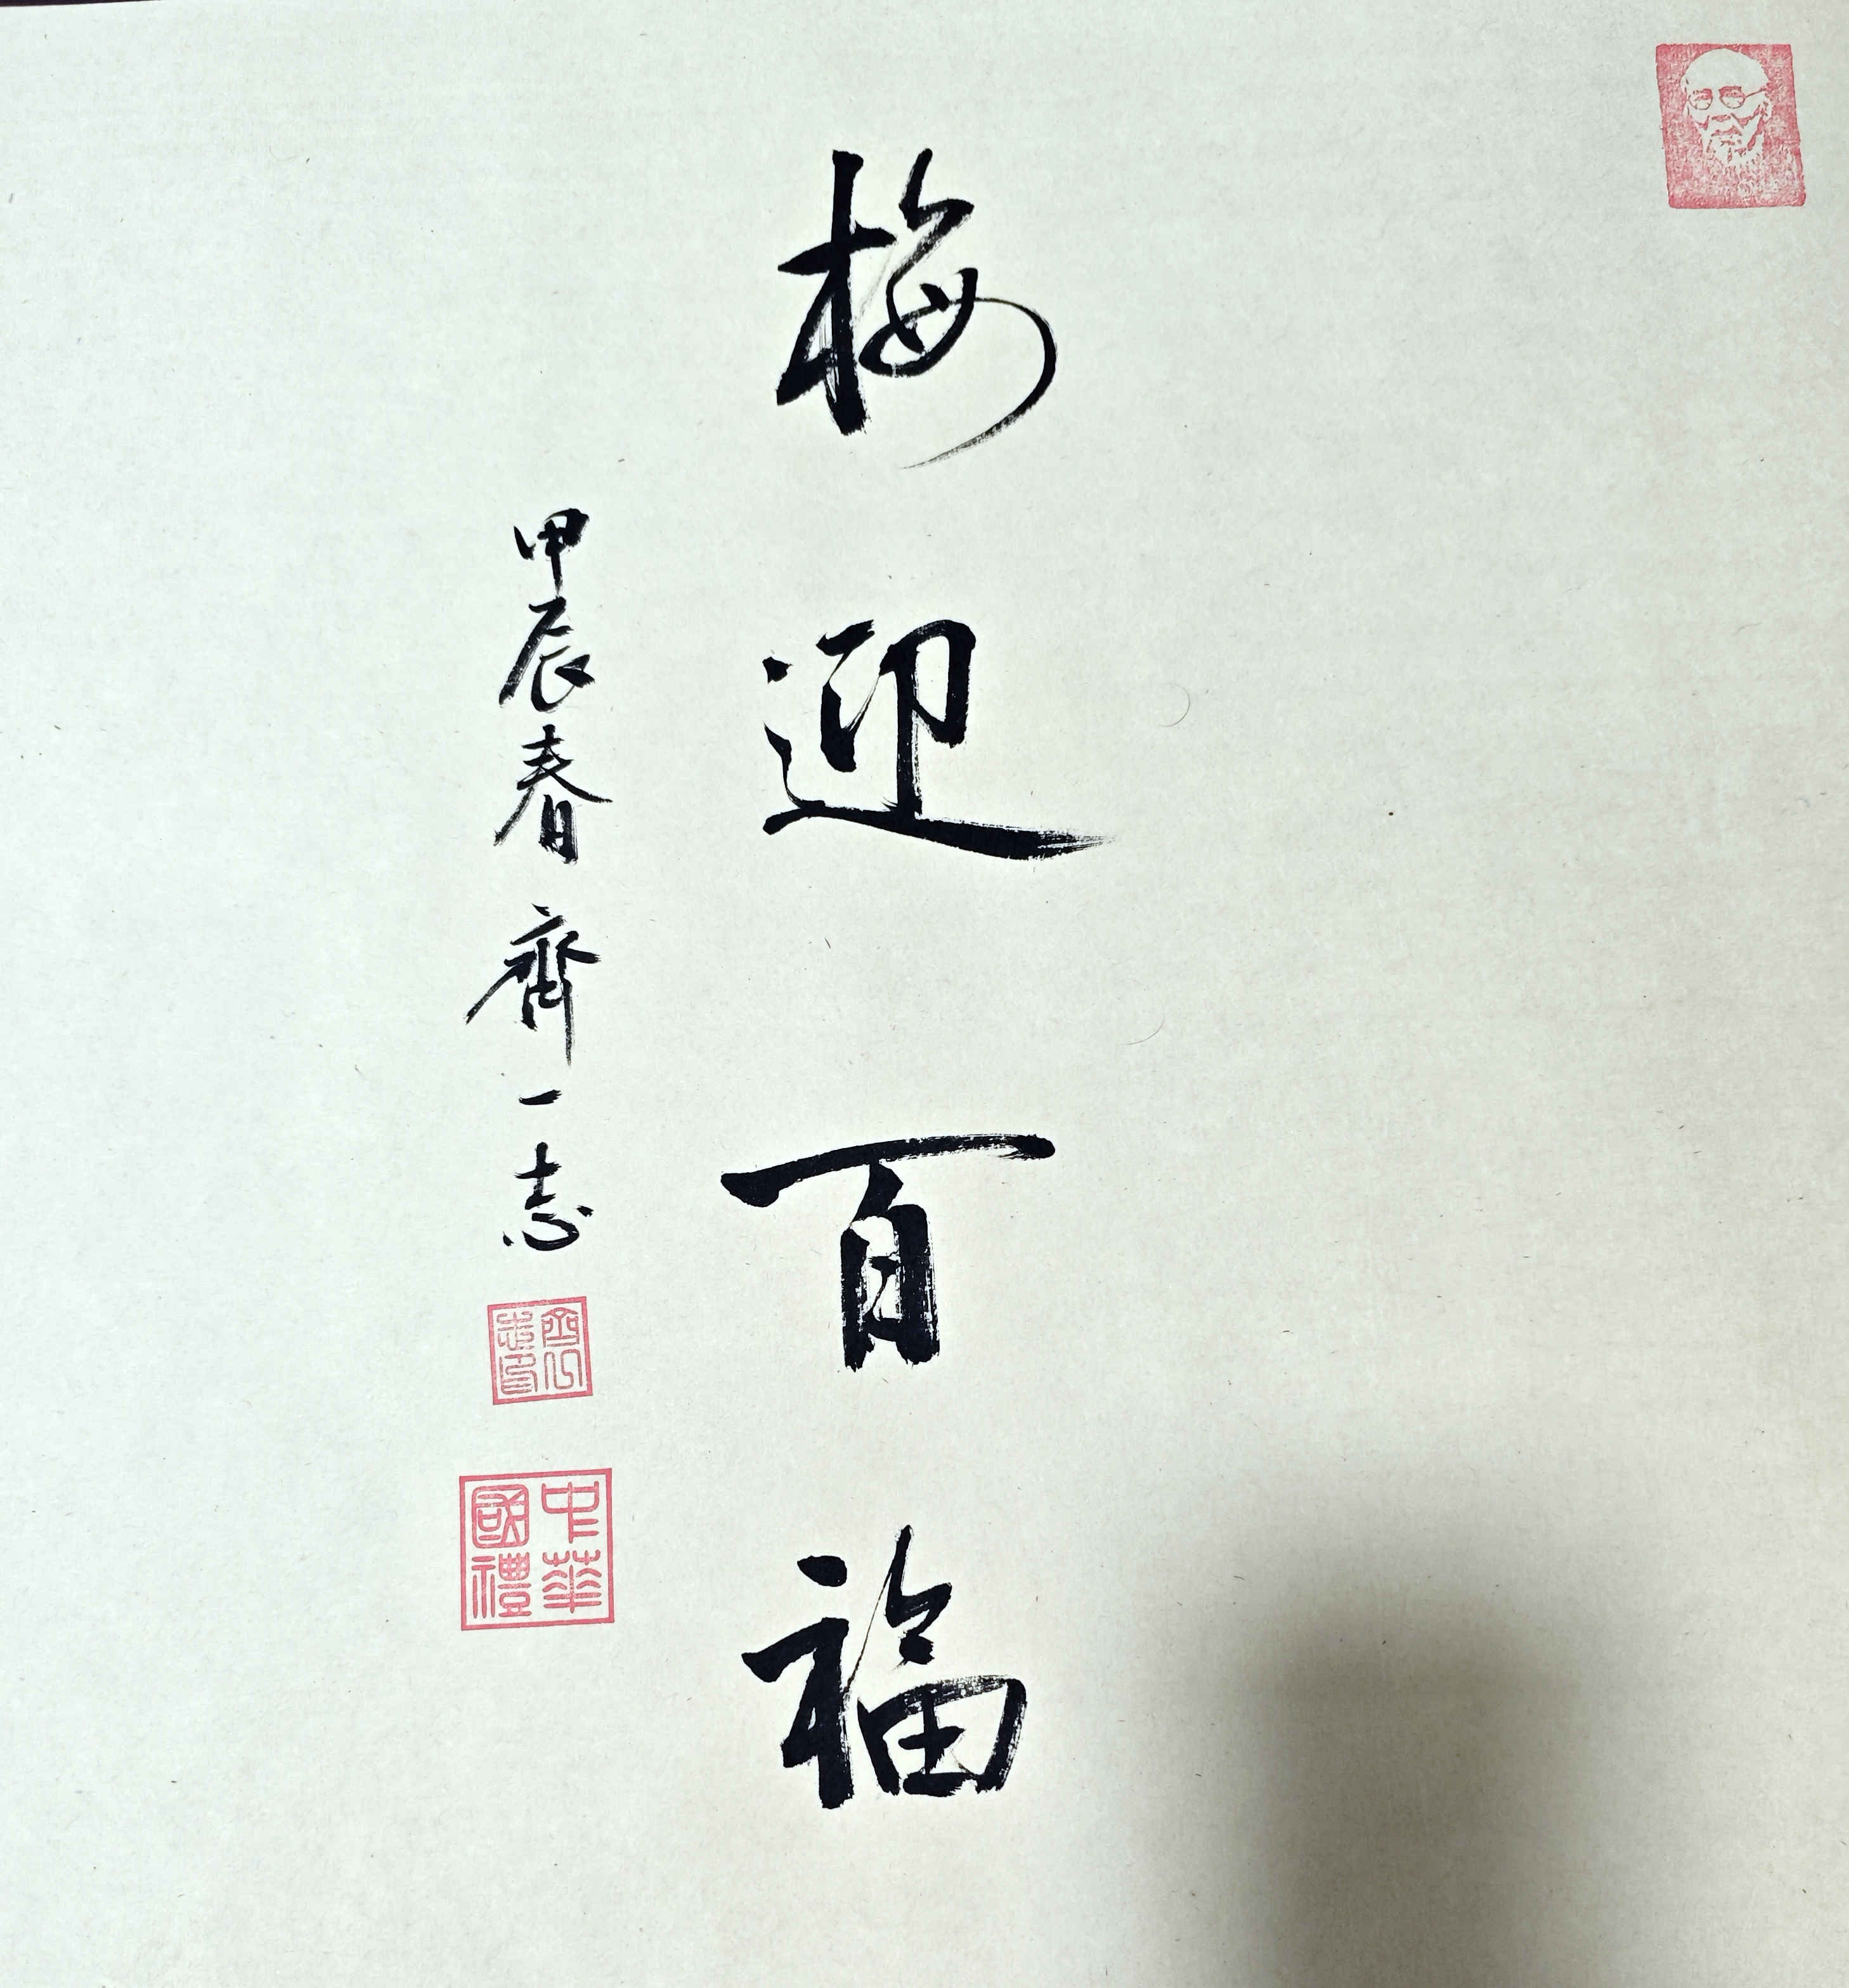 梅迎百福
甲辰春 齊一志
中華國禮